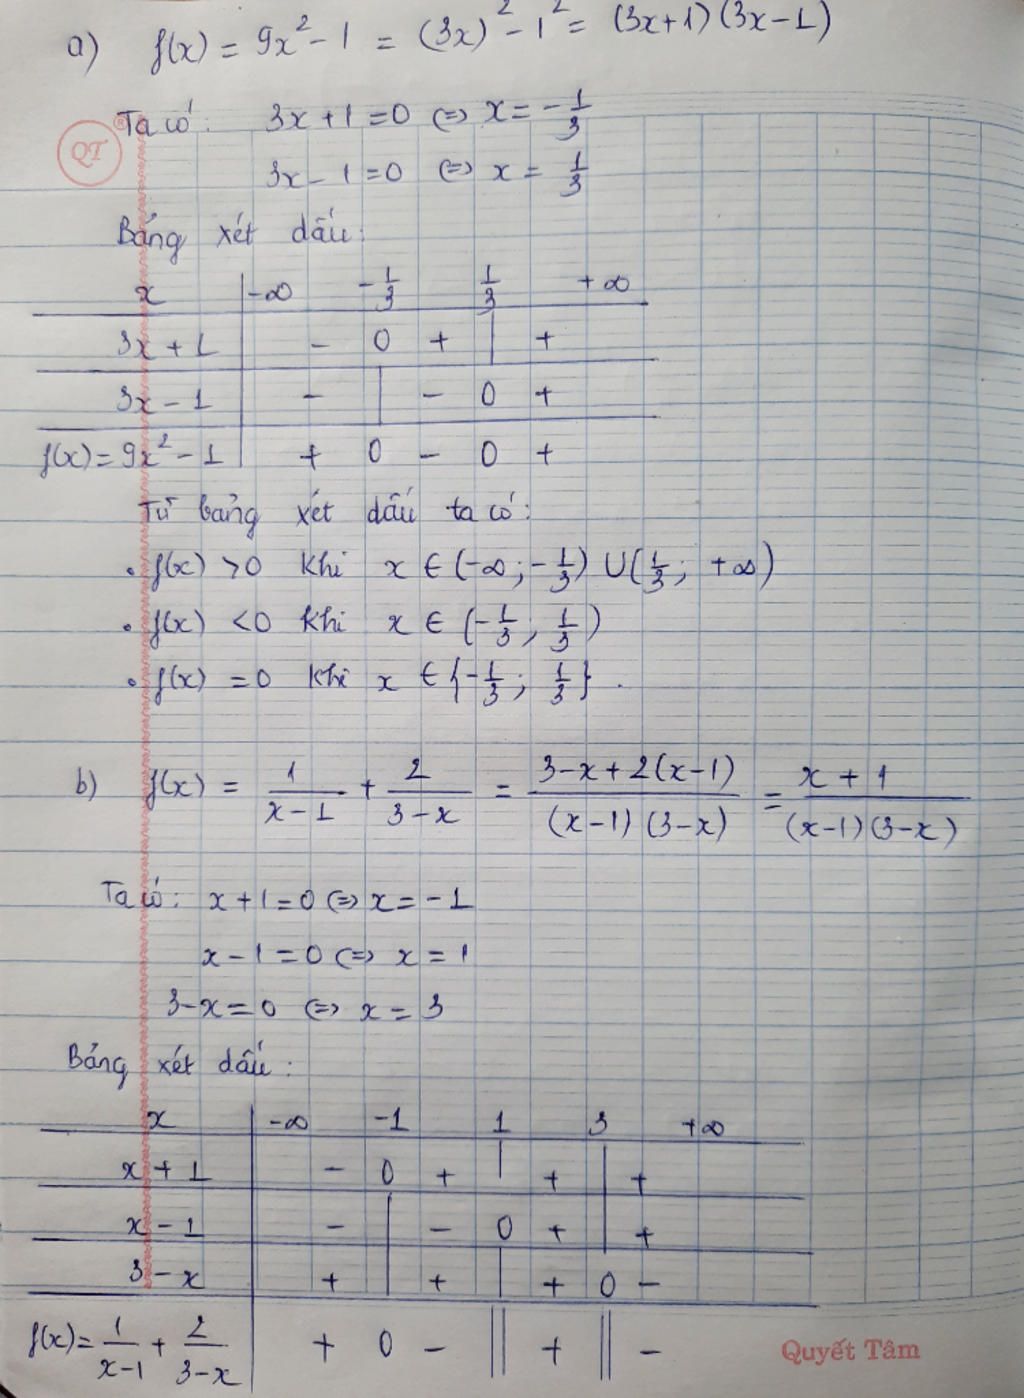 a) f(x) = 9x² - 1 = (3x)² - 1² = (3x+1)(3x-1)
Ta có: 3x+1=0 (=) x = -1/3
QT ®
3x-1=0 (=) x = 1/3
Bảng xét dấu:
x | -∞ -1/3 1/3 +∞
3x+1 | - 0 + | +
3x-1 | - | - 0 +
f(x)=9x²-1 | + 0 - 0 +
Từ bảng xét dấu ta có:
• f(x) >0 khi x ∈ (-∞; -1/3) ∪ (1/3; +∞)
• f(x) <0 khi x ∈ (-1/3; 1/3)
• f(x) =0 khi x ∈ {-1/3; 1/3}.
b) f(x) = 1/(x-1) + 2/(3-x) = (3-x+2(x-1))/((x-1)(3-x)) = (x+1)/((x-1)(3-x))
Ta có: x+1=0 (=) x=-1
x-1=0 (=) x=1
3-x=0 (=) x=3
Bảng xét dấu:
x | -∞ -1 1 3 +∞
x+1 | - 0 + | + | +
x-1 | - | - 0 + | +
3-x | + | + | + 0 -
f(x)= 1/(x-1) + 2/(3-x) | + 0 - || + || -
Quyết Tâm